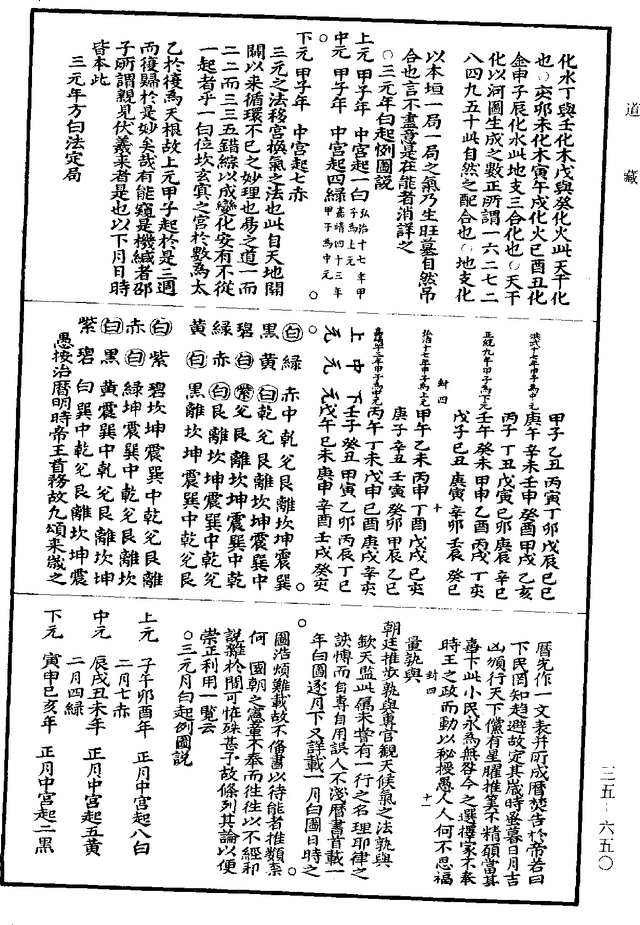 道藏
化水丁與壬化木戊與癸化火此天干化
也○亥卯未化木寅午戌化火巳酉丑化
金申子辰化水此地支三合化也○天干
化以河圖生成之數正所謂一六二七二
八四九五十此自然之配合也○地支化
以本垣一局一局之氣乃生旺墓自然吊
合也言不盡意是在能者消詳之
○三元年白起例圖說
上元 甲子年 中宮起一白 弘治十七年甲子為上元
中元 甲子年 中宮起四綠 嘉靖四十三年甲子為中元
下元 甲子年 中宮起七赤
三元之法移宮換氣之法也此自天地開
闢以來循環不已之妙理也易之道一而
二二而三三五錯綜以成變化安有不從
一起者乎一白位坎玄冥之宮於數為太
乙於後為天根故上元甲子起於是三週
而復歸於是妙矣哉有能窺是機緘者邵
子所謂親見伏羲來者是也以下月日時
皆本此
三元年方白法定局
洪武十七年甲子為中元
甲子乙丑丙寅丁卯戊辰己巳
庚午辛未壬申癸酉甲戌乙亥
丙子丁丑戊寅己卯庚辰辛巳
正統九年甲子為下元
壬午癸未甲申乙酉丙戌丁亥
戊子己丑庚寅辛卯壬辰癸巳
封四 十
弘治十七年甲子為上元
甲午乙未丙申丁酉戊戌己亥
庚子辛丑壬寅癸卯甲辰乙巳
丙午丁未戊申己酉庚戌辛亥
上中下 壬子癸丑甲寅乙卯丙辰丁巳
元元元 戊午己未庚申辛酉壬戌癸亥
白綠赤中乾兌艮離坎坤震巽
黑黃白乾兌艮離坎坤震巽中
碧紫兌艮離坎坤震巽中乾
綠赤白艮離坎坤震巽中乾兌
黃白黑離坎坤震巽中乾兌艮
白紫碧坎坤震巽中乾兌艮離
赤白綠坤震巽中乾兌艮離坎
白黑黃震巽中乾兌艮離坎坤
紫碧白巽中乾兌艮離坎坤震
愚按治曆明時帝王首務故九頒來歲之
曆先作一文表并所成曆焚告於帝若曰
下民罔知趨避故定其歲時晝暮日月吉
凶頒行天下儻有星曜推筭不精碩當其
辜卞此小民永為無咎今之選擇家不奉
時王之政而動以秘授愚人人何不思福
量孰與
封四 十一
朝廷推步孰與專官觀天候氣之法孰與
欽天監此屬未嘗有一行之名理耶律之
該博而自專自用誤人不淺曆書首載一
年白圖逐月下又詳載一月白圖日時之
圖浩煩難載故不備書以待能者推類柰
何 國朝之憲章不奉而往往以不經邪
說雜於間可恠殊甚予故條列其論以便
崇正利用一覽云
○三元月白起例圖說
上元 子午卯酉年 正月中宮起八白
二月七赤
中元 辰戌丑未年 正月中宮起五黃
二月四綠
下元 寅申巳亥年 正月中宮起二黑
三五-六五〇